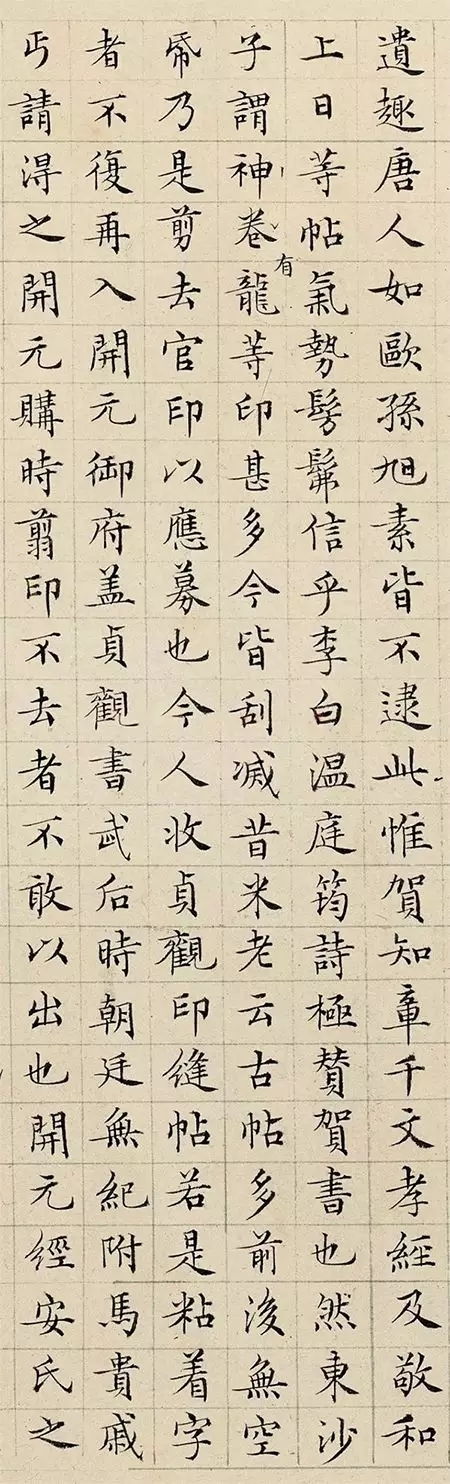 遺趣唐人如歐孫旭素皆不逮此惟賀知章千文孝經及敬和
上日等帖氣勢髣髴信乎李白温庭筠詩極賛賀書也然東沙
子謂神卷有龍等印甚多今皆刮滅昔米老云古帖多前後無空
帋乃是剪去官印以應募也今人收貞觀印縫帖若是粘着字
者不復再入開元御府盖貞觀書武后時朝廷無紀附馬貴戚
丐請得之開元購時翦印不去者不敢以出也開元經安氏之